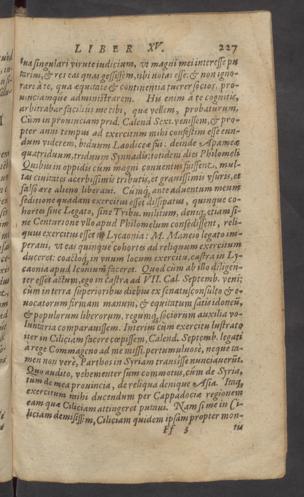 LIBER XV. 227
tua singulari virtute iudicium, vt magni mei interesse pu
tarim, & res eas quas gessissem, tibi notas esse: & non igno-
rari à te, qua æquitate & continentia tuerer socios, pro-
uinciamque administrarem. His enim à te cognitis,
arbitrabar facilius me tibi, quæ vellem, probaturum.
Cùm in prouinciam prid. Calend. Sext. venissem, & pro-
pter anni tempus ad exercitum mihi confestim esse eun-
dum viderem, biduum Laodiceæ fui: deinde Apameæ
quatriduum, triduum Synnadis: totidem dies Philomeli.
Quibus in oppidis cùm magni conuentus fuissent, mul-
tas ciuitates acerbissimis tributis, & grauissimis vsuris, et
falso ære alieno liberaui. Cùmq́; ante aduentum meum
seditione quadam exercitus esset dissipatus, quinque co-
hortes sine Legato, sine Tribu. militum, deniq; etiam si-
ne Centurione vllo apud Philomelum consedissent, reli-
quus exercitus esset in Lycaonia: M. Anneio legato im-
peraui, vt eas quinque cohortes ad reliquum exercitum
duceret: coactoq́; in vnum locum exercitu, castra in Ly-
caonia apud Iconium faceret. Quod cùm ab illo diligen-
ter esset actum, ego in castra ad VII. Cal. Septemb. veni:
cùm interea superioribus diebus ex senatusconsulto & e-
uocatorum firmam manum, & equitatum satis idoneū,
& populorum liberorum, regumq́; sociorum auxilia vo-
luntaria comparauissem. Interim cùm exercitu lustrato
iter in Ciliciam facere cœpissem, Calend. Septemb. legati
à rege Commageno ad me missi, pertumultuosè, neque ta-
men non verè, Parthos in Syriam transisse nunciauerūt.
Quo audito, vehementer sum commotus, cùm de Syria,
tum de mea prouincia, de reliqua denique Asia. Itaq́;
exercitum mihi ducendum per Cappadociæ regionem
eam quæ Ciliciam attingeret putaui. Nam si me in Ci-
liciam demisissem, Ciliciam quidem ipsam propter mon-
Ff 3 tis